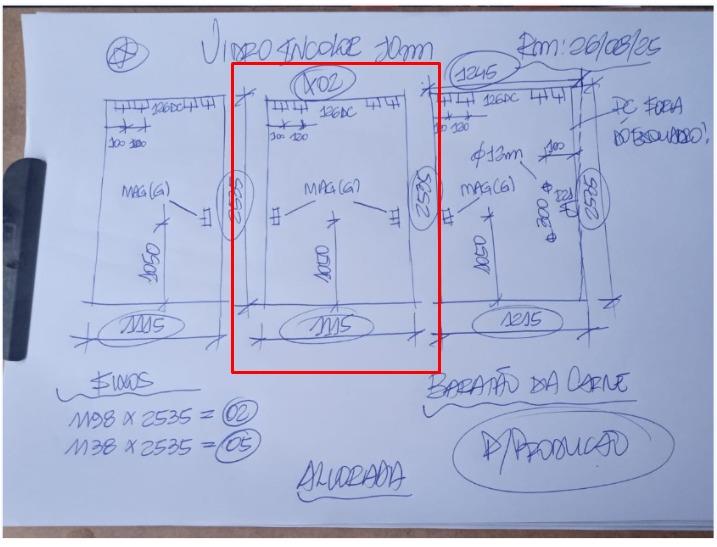 VIDRO INCOLOR 10mm
Rm: 26/08/25
X02
1245
126DC
100 100
MAG(G)
1050
2535
1115
126DC
100 120
MAG(G)
1050
2535
1115
126DC
100 120
PC FORA
DO ESQUADRO!
Ø12mm
100
MAG(G)
300
1050
2525
1215
FIXOS
1198 X 2535 = 02
1138 X 2535 = 05
BARATÃO DA CARNE
P/PRODUÇÃO
ALVORADA